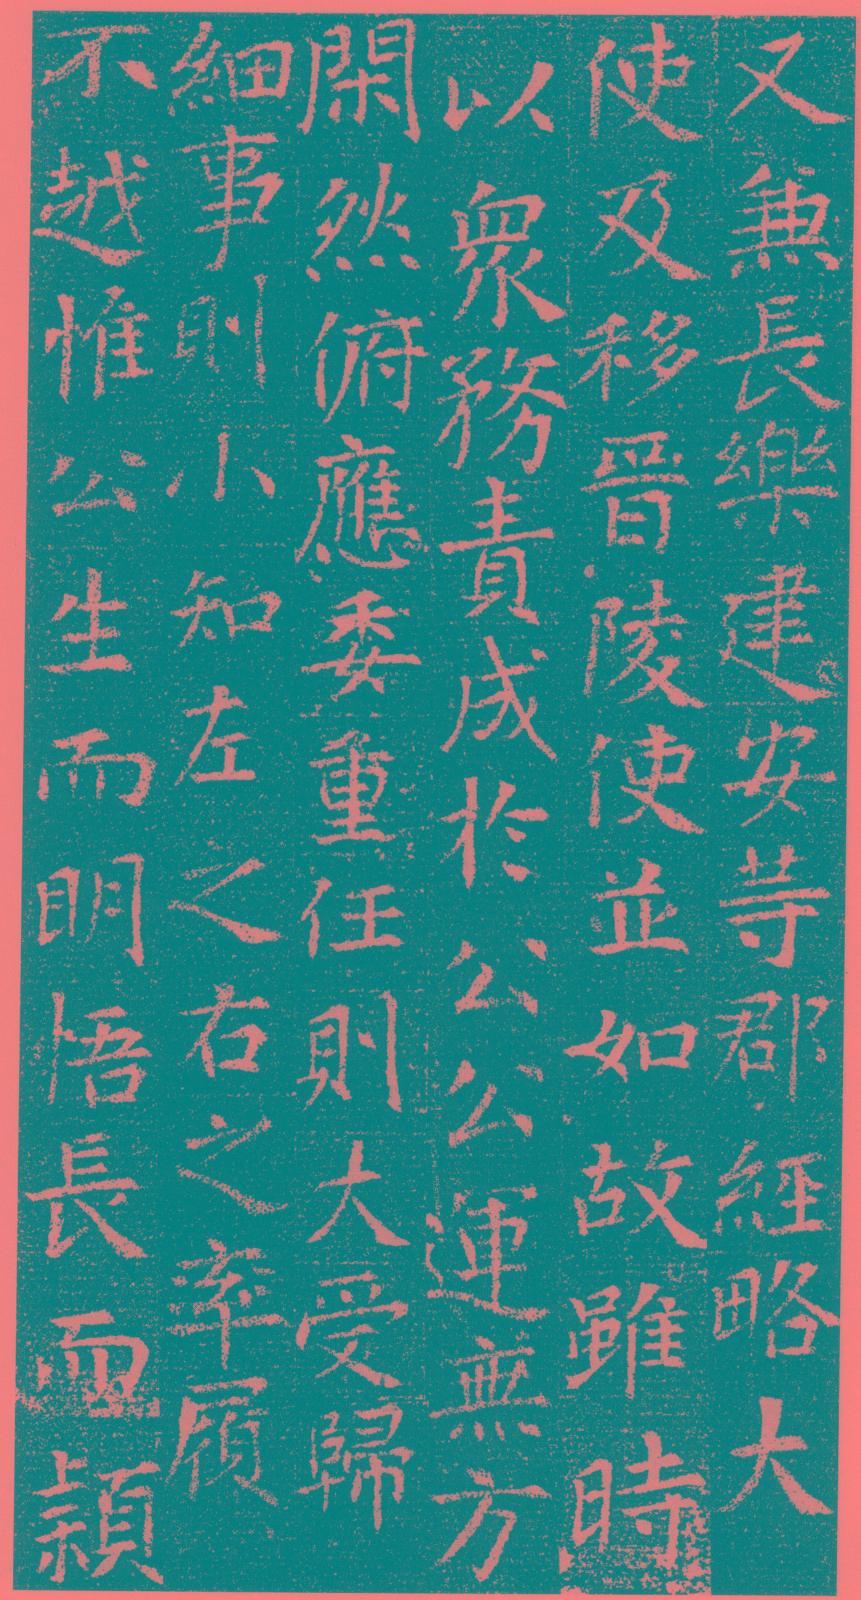 又兼長樂建安等郡經略大
使及移晉陵使並如故雖時
以眾務責成於公公運無方
閑然俯應委重任則大受歸
細事則小知左之右之率履
不越惟公生而明悟長而穎